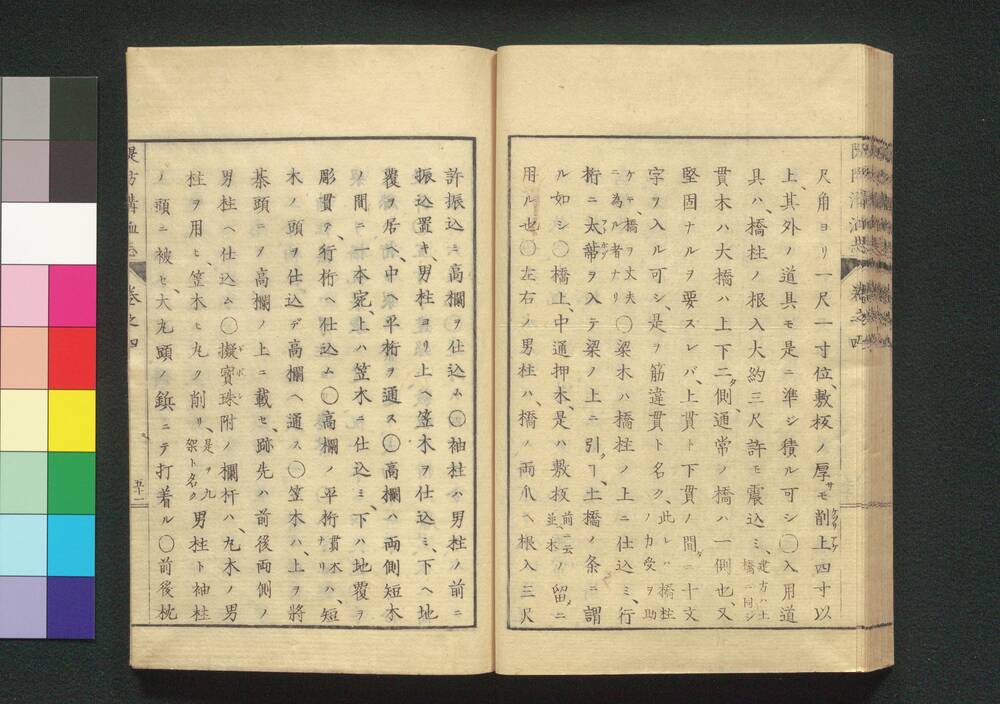 尺角ヨリ一尺一寸位、敷板ノ厚サモ削上四寸以
上、其外ノ道具モ是ニ準ジ積ル可シ〇入用道
具ハ、橋柱ノ根入大約三尺許モ震込ミ、建方ハ土橋ト同ジ
貫木ハ大橋ハ上下二側、通常ノ橋ハ一側也、又
堅固ナルヲ要スレバ、上貫ト下貫ノ間ニ十文
字ヲ入ル可シ、是ヲ筋違貫ト名ク、此レハ橋柱ノ力受ヲ助
ケテ橋ヲ丈夫ニ為ル者ナリ〇梁木ハ橋柱ノ上ニ仕込ミ、行
桁ニ太蔕ヲ入テ梁ノ上ニ引ク、土橋ノ条ニ謂
ル如シ〇橋上、中通押木、是ハ敷板前ニ云並木ノ留メニ
用ル也〇左右ノ男柱ハ、橋ノ両爪ヘ根入三尺
許振込ニ高欄ヲ仕込ム〇袖柱ハ男柱ノ前ニ
振込置キ、男柱ヨリ上ヘ笠木ヲ仕込ミ、下ヘ地
覆ヲ居ヘ、中ヘ平桁ヲ通ス〇高欄ハ両側短木
ノ間ニ一本宛、上ハ笠木ニ仕込ミ、下ハ地覆ヲ
彫貫ヲ、行桁ヘ仕込ム〇高欄ノ平桁貫木ナリハ、短
木ノ頭ヲ仕込デ高欄ヘ通ス〇笠木ハ、上ヲ将
棊頭ニシテ高欄ノ上ニ載セ、跡先ハ前後両側ノ
男柱ヘ仕込ム〇擬寶珠附ノ欄杆ハ、丸木ノ男
柱ヲ用ヒ、笠木ヒ丸ク削リ、是ヲ丸架ト名ク男柱ト袖柱
ノ頭ニ被セ、大丸頭ノ鋲ニテ打着ル〇前後枕
巻之四
五十一